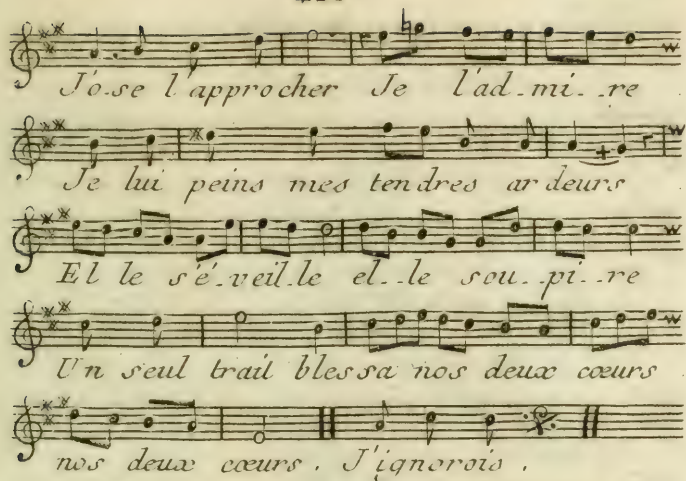 J'o.se l'approcher Je l'ad-mi-.re
Je lui peins mes tendres ar deurs
El le s'é-veil.le el-.le sou-.pi-.re
Un seul trait bles sa nos deux cœurs
nos deux cœurs. J'ignorois.